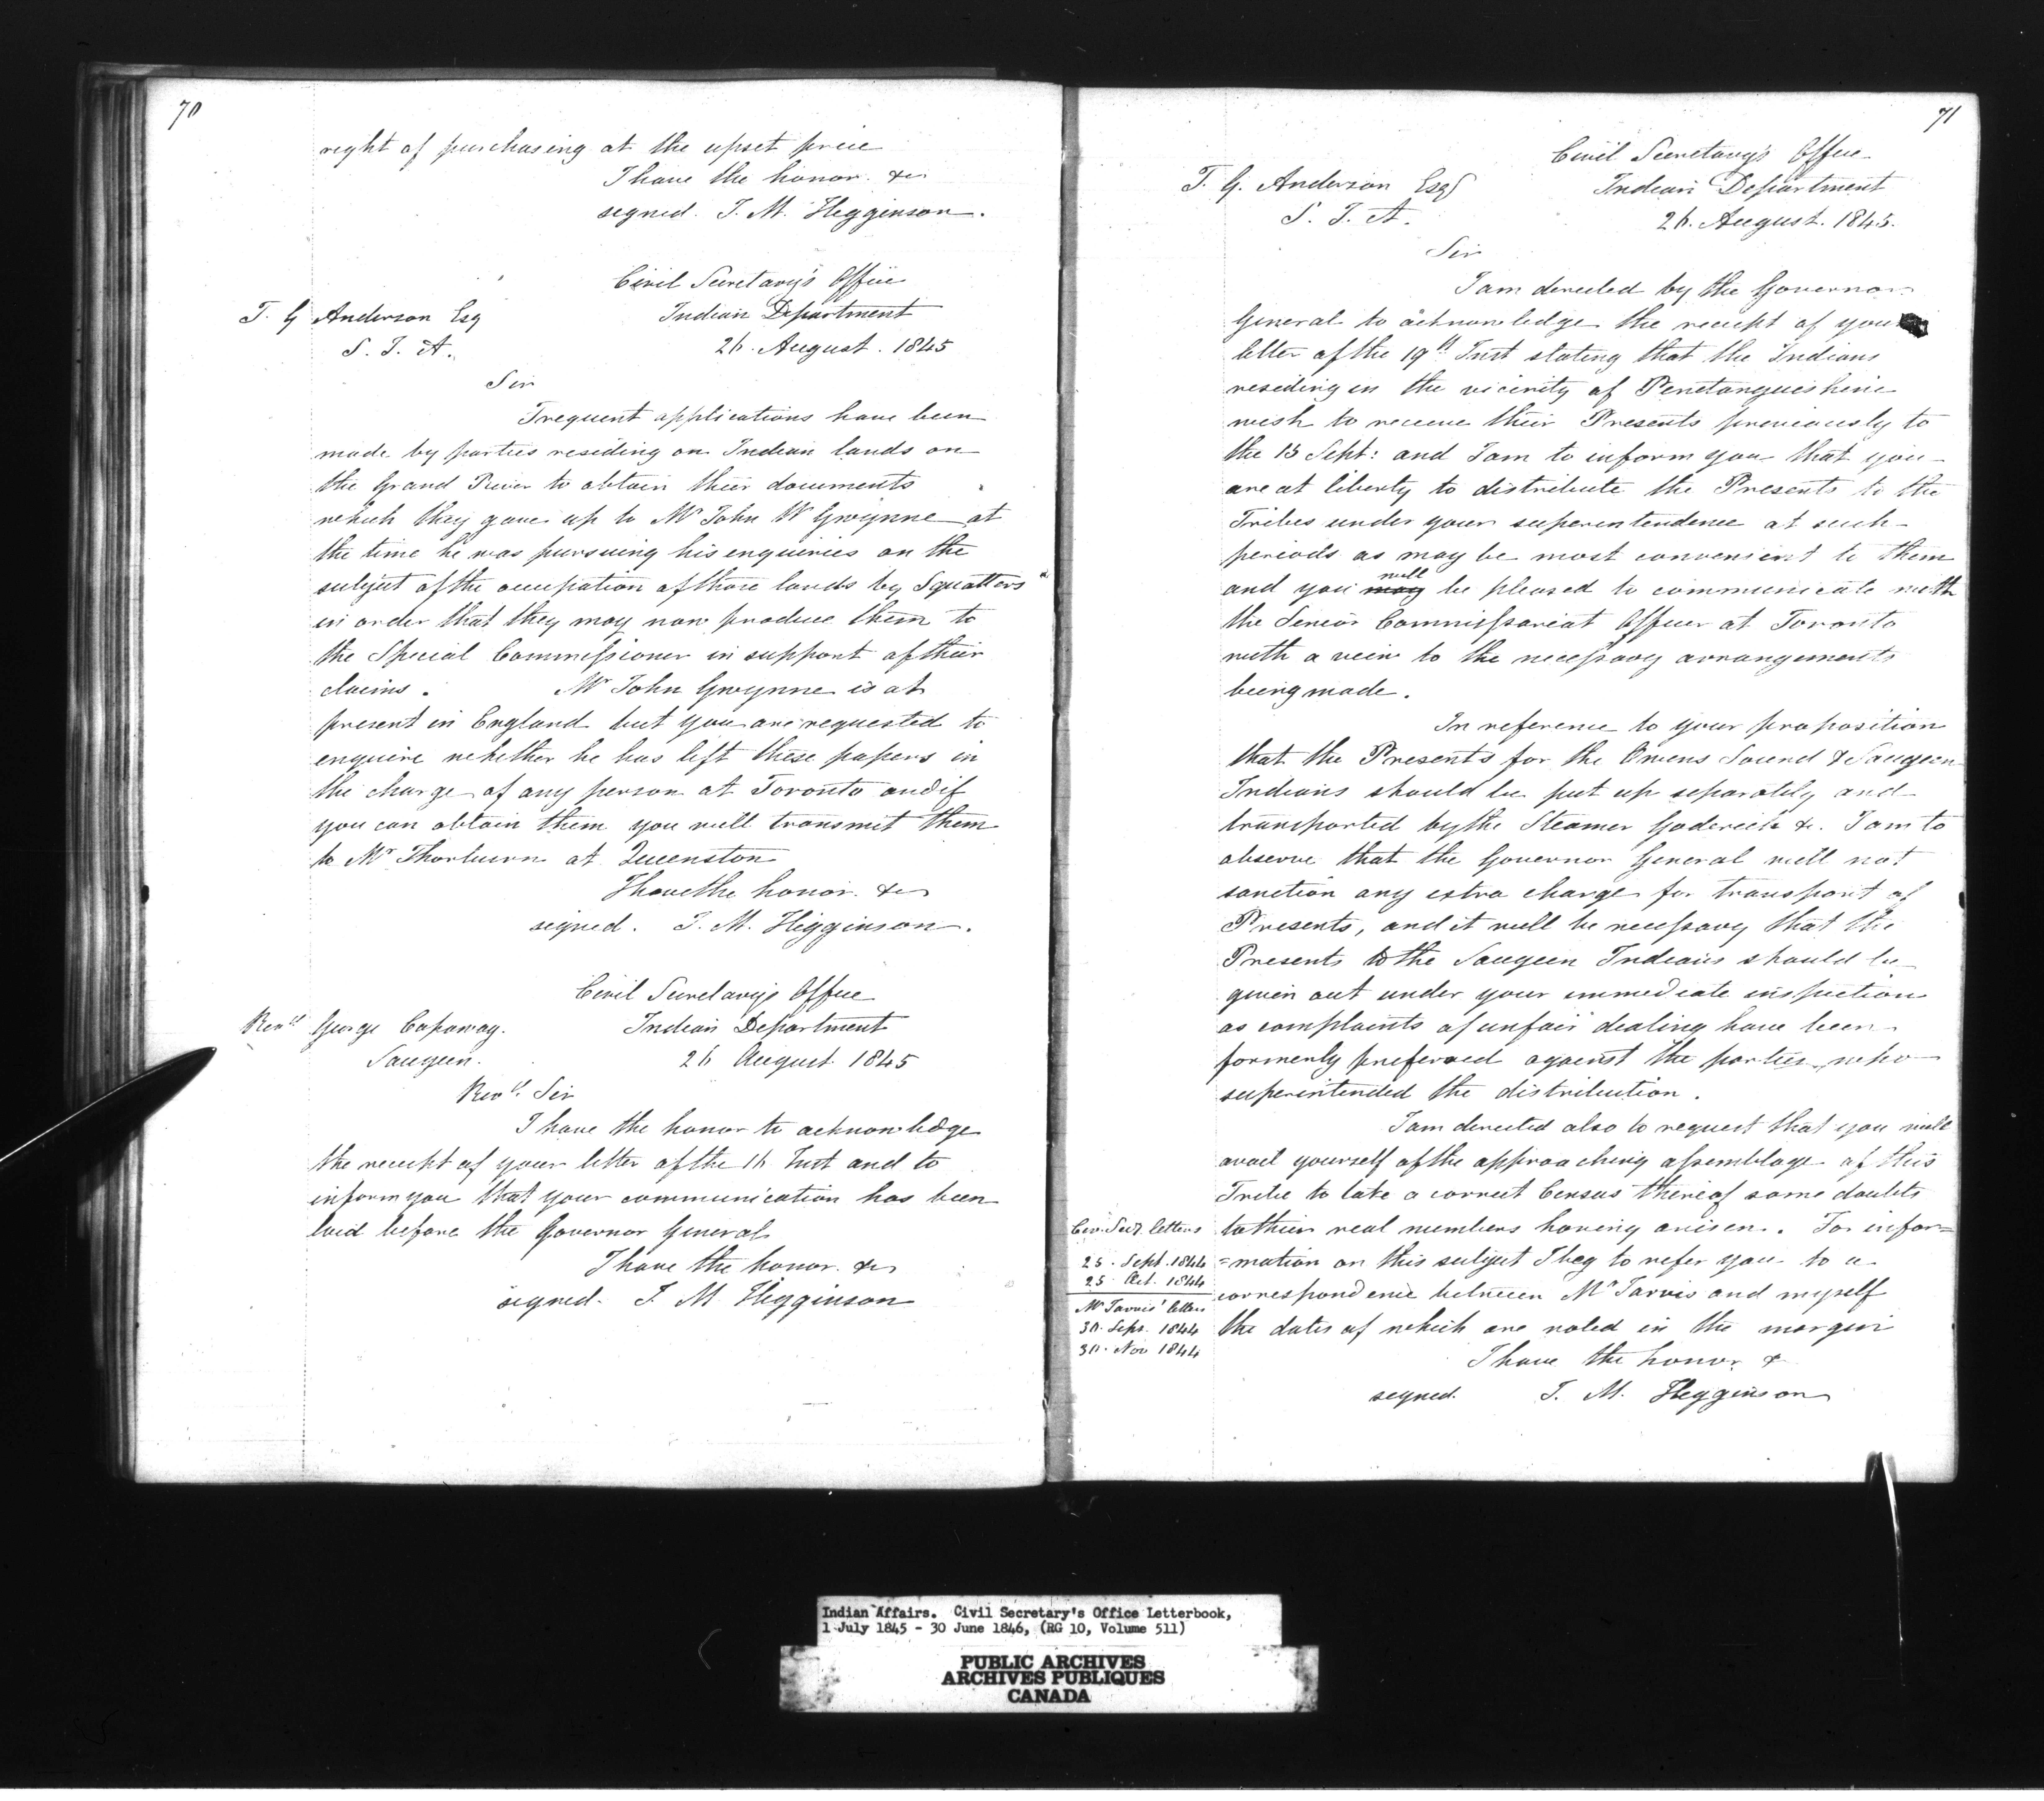 70
right of purchasing at the upset price
I have the honor &c
signed. J. M. Higginson.
Civil Secretary's Office
T. G Anderson Esq
Indian Department
S. I. A.
26. August. 1845
Sir
Frequent applications have been
made by parties residing on Indian lands on
the Grand River to obtain their documents
which they gave up to Mr John W Gwynne at
the time he was pursuing his enquiries on the
subject of the occupation of those lands by Squatters
in order that they may now produce them to
the Special Commissioner in support of their
claims. Mr John Gwynne is at
present in England but you are requested to
enquire whether he has left these papers in
the charge of any person at Toronto and if
you can obtain them you will transmit them
to Mr Thorburn at Queenston
I have the honor &c
signed. J. M. Higginson.
Civil Secretary's Office
Revd George Copaway.
Indian Department
Saugeen.
26 August 1845
Revd. Sir
I have the honor to acknowledge
the receipt of your letter of the 16 Inst and to
inform you that your communication has been
laid before the Governor General
I have the honor. &c
signed. J. M Higginson
71
Civil Secretary's Office
T. G. Anderson Esqr
Indian Department
S. I. A.
26. August. 1845.
Sir
I am directed by the Governor
General to acknowledge the receipt of your
letter of the 19th Inst stating that the Indians
residing in the vicinity of Penetanguishine
wish to receive their Presents previously to
the 15 Sept: and I am to inform you that you
are at liberty to distribute the Presents to the
Tribes under your superintendence at such
periods as may be most convenient to them
and you may will be pleased to communicate with
the Senior Commissariat Officer at Toronto
with a veiw to the necessary arrangements
being made.
In reference to your proposition
that the Presents for the Owens Sound & Saugeen
Indians should be put up separately and
transported by the Steamer Goderich &c. I am to
observe that the Governor General will not
sanction any extra charge for transport of
Presents, and it will be necessary that the
Presents to the Saugeen Indians should be
given out under your immediate inspection
as complaints of unfair dealing have been
formerly preferred against the parties who
superintended the distribution.
I am directed also to request that you will
avail yourself of the approaching assemblage of this
Tribe to take a correct Census thereof some doubts
to their real numbers having arisen. For infor=
=mation on this subject I beg to refer you to a
correspondence between Mr Jarvis and myself
the dates of which are noted in the margin
I have the honor &
signed. J. M. Higginson
Civ. Secy. letters
25. Sept. 1844
25. Oct. 1844
Mr Jarvis' letters
30. Sept. 1844
30. Nov 1844
Indian Affairs. Civil Secretary's Office Letterbook,
1 July 1845 - 30 June 1846, (RG 10, Volume 511)
PUBLIC ARCHIVES
ARCHIVES PUBLIQUES
CANADA